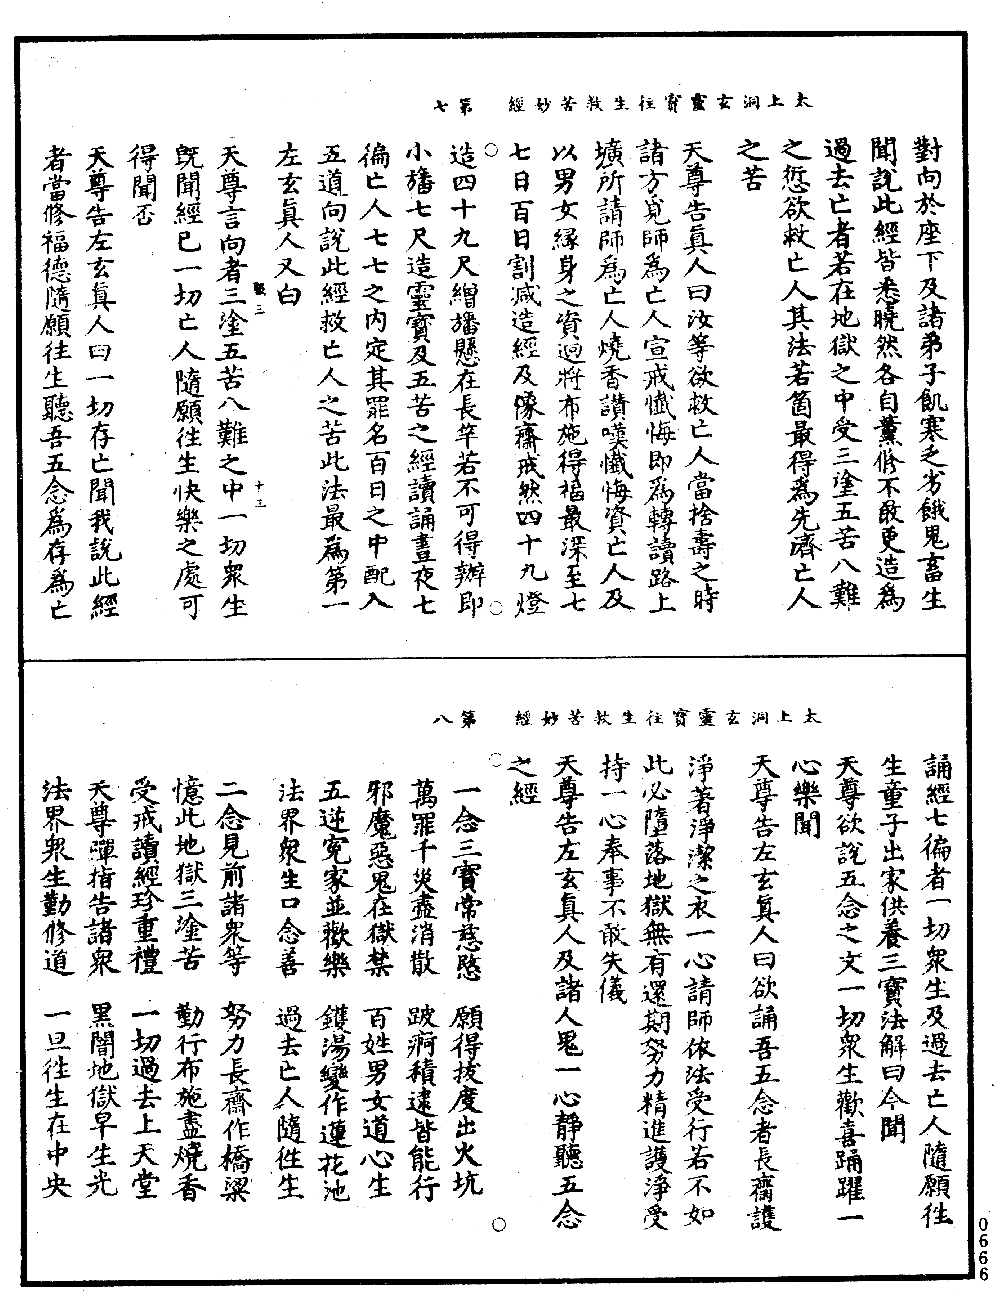 太上洞玄靈寶往生救苦妙經　第七
對向於座下及諸弟子飢寒乏劣餓鬼畜生
聞說此經皆悉曉然各自薰修不敢更造為
過去亡者若在地獄之中受三塗五苦八難
之愆欲救亡人其法若箇最得為先濟亡人
之苦
天尊告真人曰汝等欲救亡人當捨壽之時
諸方覓師為亡人宣戒懺悔即為轉讀路上
壙所請師為亡人燒香讚嘆懺悔資亡人及
以男女緣身之資迴將布施得福最深至七
七日百日割減造經及像齋戒然四十九燈
造四十九尺繒旛懸在長竿若不可得辦即
小旛七尺造靈寶及五苦之經讀誦晝夜七
徧亡人七七之內定其罪名百日之中配入
五道向說此經救亡人之苦此法最為第一
左玄真人又白
十三
天尊言向者三塗五苦八難之中一切眾生
既聞經已一切亡人隨願往生快樂之處可
得聞否
天尊告左玄真人曰一切存亡聞我說此經
者當修福德隨願往生聽吾五念為存為亡
太上洞玄靈寶往生救苦妙經　第八
誦經七徧者一切眾生及過去亡人隨願往
生童子出家供養三寶法解曰今聞
天尊欲說五念之文一切眾生歡喜踊躍一
心樂聞
天尊告左玄真人曰欲誦吾五念者長齋護
淨著淨潔之衣一心請師依法受行若不如
此必墮落地獄無有還期努力精進護淨受
持一心奉事不敢失儀
天尊告左玄真人及諸人鬼一心靜聽五念
之經
一念三寶常慈愍　願得拔度出火坑
萬罪千災盡消散　跛痾積逮皆能行
邪魔惡鬼在獄禁　百姓男女道心生
五逆冤家並歡樂　鑊湯變作蓮花池
法界眾生口念善　過去亡人隨往生
二念見前諸眾等　努力長齋作橋梁
憶此地獄三塗苦　勤行布施盡燒香
受戒讀經珍重禮　一切過去上天堂
天尊彈指告諸眾　黑闇地獄早生光
法界眾生勤修道　一旦往生在中央
0666